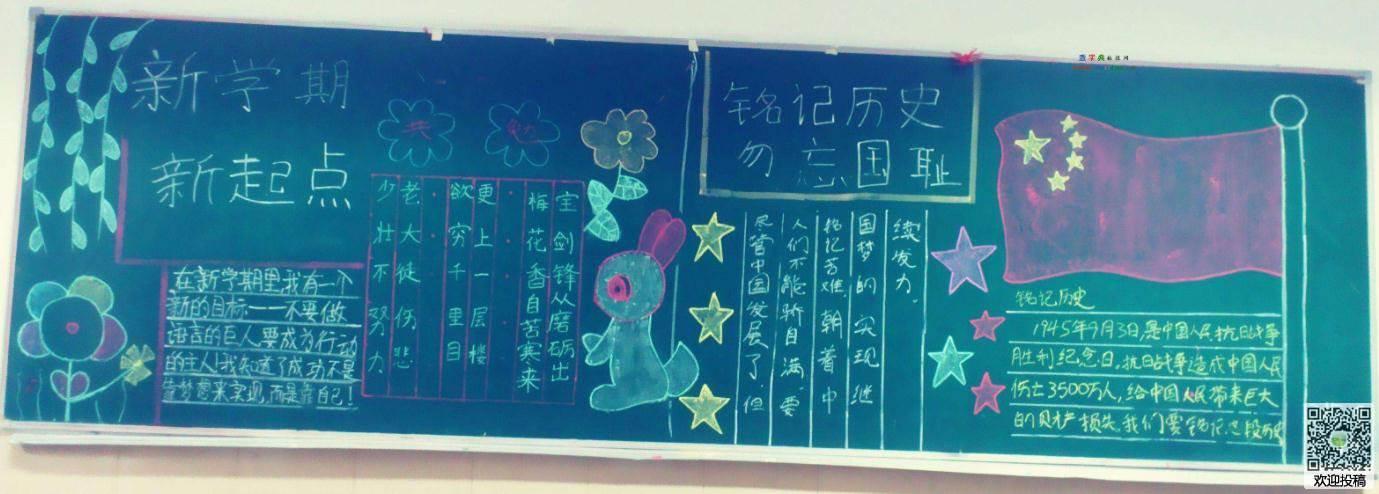 新学期
新起点
在新学期里我有一个
新的目标——不要做
语言的巨人要成为行动
的主人!我知道了成功不是
靠梦想来实现,而是靠自己!
共 勉
少壮不努力
老大徒伤悲
欲穷千里目
更上一层楼
梅花香自苦寒来
宝剑锋从磨砺出
铭记历史
勿忘国耻
尽管中国发展了,但
人们不能骄自满,要
铭记苦难,朝着中
国梦的实现继
续发力.
铭记历史
1945年9月3日,是中国人民抗日战争
胜利纪念日,抗日战争造成中国人民
伤亡3500万人,给中国人民带来巨大
的财产损失,我们要铭记这段历史
查字典
欢迎投稿